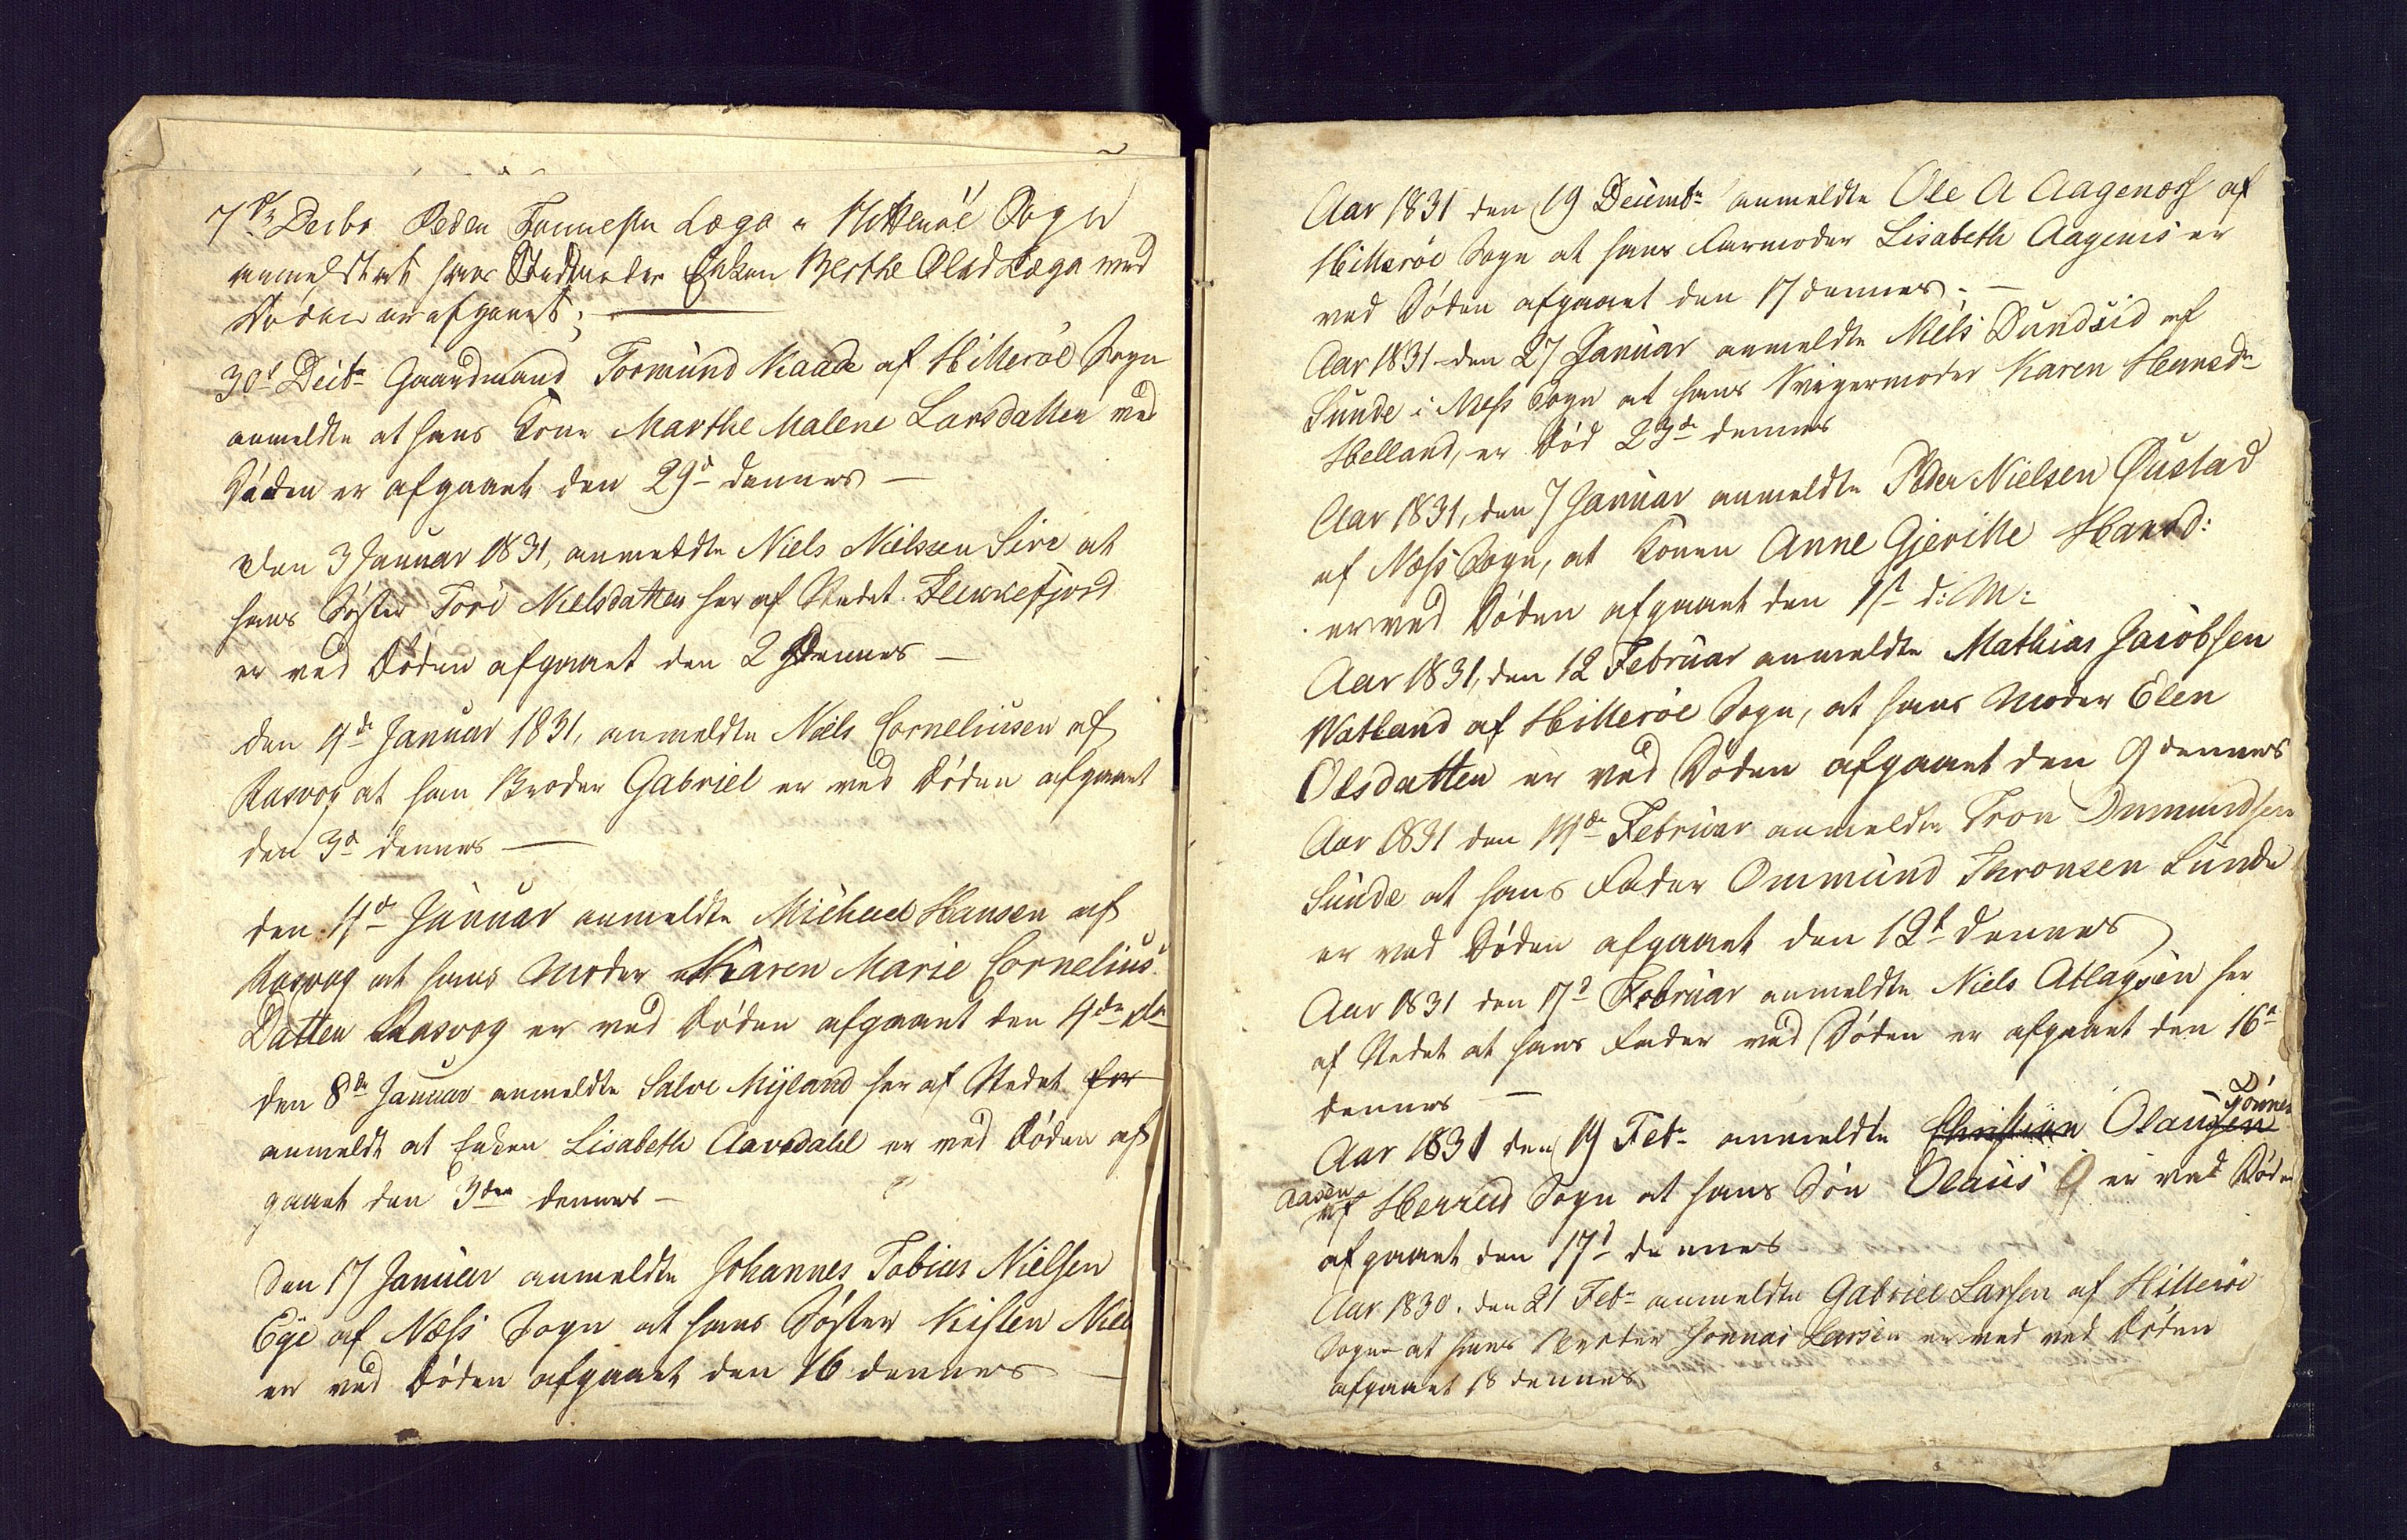 7de Decbr Peder Tønnesen Læga Hitterøe Sogn
anmeldt at hans Enken Berthe Olsd Læga ved
Døden er afgaaet;
30te Decbr Gaardmand Tormund Kaade af Hitterøe Sogn
anmeldte at hans Kone Marthe Malene Larsdatter ved
Døden er afgaaet den 29de dennes —
den 3 Januar 1831, anmeldte Niels Nielssen Sire at
hans Søster Tore Nielsdatter her af Stedet Flekkefjord
er ved Døden afgaaet den 2 dennes —
den 4de Januar 1831, anmeldte Niels Corneliussen af
Rasvog at han Broder Gabriel er ved Døden afgaaet
den 3de dennes —
den Januar anmeldte Michael Hansen af
Rasvog at hans Moder Karen Marie Cornelius
Datter Rasvog er ved Døden afgaaet den 4de ds
den 8de Januar anmeldte Salve Myland her af Stedet for
anmeldt at Enken Lisabeth Aavedahl er ved Døden af
gaaet den 3den dennes —
den 17 Januar anmeldte Johannes Tobias Nielsen
Eye af Næss Sogn at hans Søster Kisten Niel
er ved Døden afgaaet den 16 dennes —
Aar 1831 den 19 Decembr anmeldte Ole A Aagenæs af
Hitterøe Sogn at hans Farmoder Lisabeth Aagenes er
ved Døden afgaaet den 17 dennes. —
Aar 1831 den 27 Januar anmeldte Niels af
Sunde i Ness Sogn at hans Svigermoder Karen Hansdr
Helland, er Død 23de dennes
Aar 1831, den 7 Januar anmeldte Peder Nielsen Øustad
af Næss Sogn, at Konen Anne Gjeritte Hansd:
er ved Døden afgaaet den 1st d: M:
Aar 1831, den 12 Februar anmeldte Mathias Jacobsen
Watland af Hitterøe Sogn, at hans Moder Elen
Olsdatter er ved Døden afgaaet den 9 dennes
Aar 1831 den 14de Februar anmeldte Tron Ommundsen
Sunde at hans Fader Ommund Thronsen Sunde
er ved Døden afgaaet den 12t dennes
Aar 1831 den 17d Februar anmeldte Niels Atlagsen her
af Stedet at hans Fader ved Døden er afgaaet den 16d
dennes —
Aar 1831 den 19 Febr anmeldte Christian Olaussen Tønnes
Aasen af Herred Sogn at hans Søn Olaus er ved Døden
afgaaet den 17d dennes
Aar 1830. den 21 Febr anmeldte Gabriel Larsen af Hitterøe
Sogn at hans Broder Jonnas Larsen er ved ved Døden
afgaaet 18 dennes